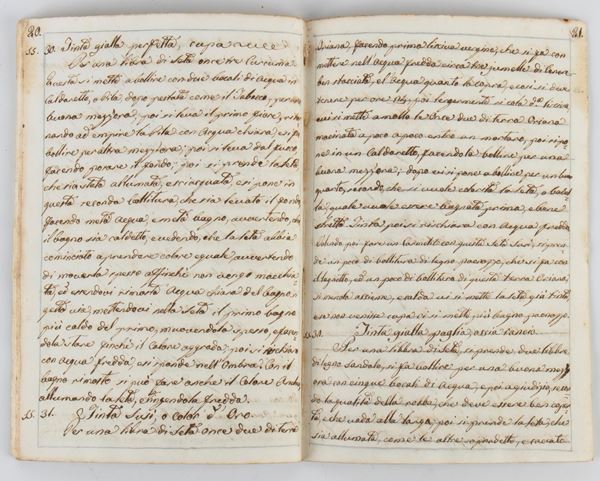 20.
§§. 30. Tinta gialla perfetta, cupa
Per una libra di Seta once tre Curcuma
questa si mette a bollire con due bocali di Acqua in
Caldaretto, o bita, dopo pestata come il Tabacco, per una
buona mezz'ora, poi si leva il primo fiore, ritor
nando ad empire la bita con Acqua chiara, e si fa
bollire per altra mezz'ora; poi si leva dal fuoco,
facendo posare il fondo; poi si prende la seta,
che sia stata allumata, e sciacquata, e si pone in
questa seconda bollitura, che sia levato il fondo,
facendo metà acqua, e metà bagno, avvertendo, che
il bagno sia caldetto, e vedendo, che la seta abbia
cominciato a prendere colore eguale, avvertendo
di moverla spesso affinchè non venga macchia
ta, ed essendovi rimasta Acqua chiara del bagno,
gettò via, mettendovi nella seta il primo bagno
più caldo del primo, movendola spesso, e facen
dola stare finchè il Colore aggrada, poi si risciacqua
con Acqua fredda, e si spande nell'Ombra. Con il
bagno rimasto si può fare anche il Colore
allumando la seta, e tingendola fredda.
§§. 31. Tinta Susi, o color d'Oro
Per una libra di Seta once due di terra
21.
Oriana, facendo prima liscivia vergine, che si fa con
mettere nell'Acqua fredda circa tre jumelle di Cenere
ben stacciata, el Acqua quanto la copra, e così si deve
tenere per ore poi leggermente si cola d.ª lisciva
e vi si mette a mollo le once due di terra Oriana
macinata a poco a poco entro un mortaro, poi si po
ne in un Caldaretto, facendola bollire per una
buona mezz'ora; dopo vi si pone a bollire per un
quarto, secondo, che si vuole colorita la seta, o
la, quale vuole essere bagnata prima, e bene
stretta. Tinta poi si risciacqua con Acqua fredda
Volendo poi fare un Canellato con questa seta Susi, si pren
de un poco di bollitura di legno paonazzo, che si fa con
il legnetto, ed un poco di bollitura di questa terra Oriana,
si mescola assieme, e calda vi si mette la seta già tinta,
e se non venisse cupa ci si metti più bagno paonazzo.
§§. 31. Tinta gialla paglia, ossia rancio
Per una libbra di Seta, si prende due libbre
di legno Sandalo, si fa bollire per una buona mezz'
ora con cinque bocali di Acqua, e poi a giudizio, secon
do la qualità della robba, che deve essere ben coper
ta, e che vada alla larga, poi si prende la seta, che
sia allumata, come le altre sopradette, e cavata